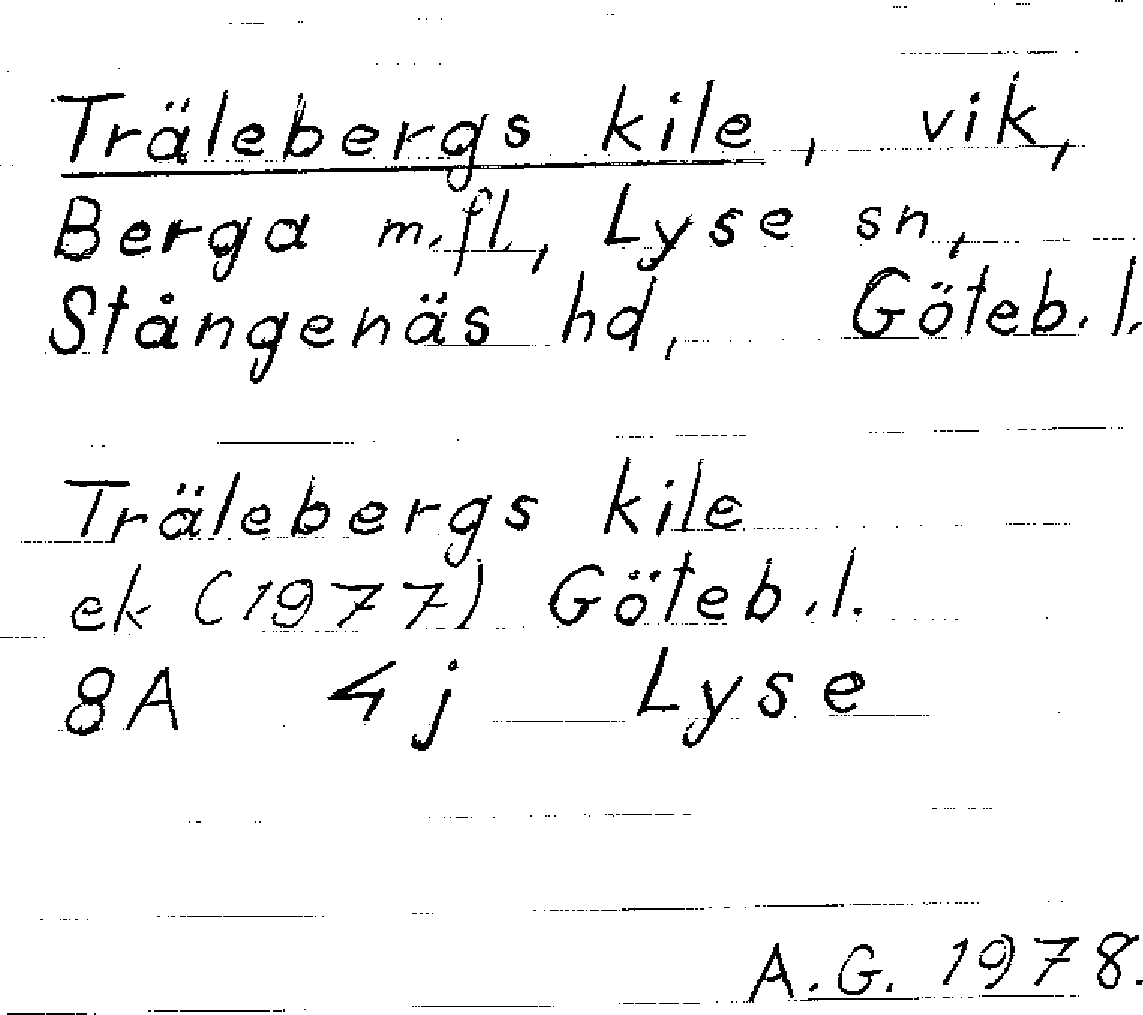 Trälebergs kile, vik,
Berga m.fl., Lyse sn,
Stångenäs hd, Göteb.l.
Trälebergs kile
ek (1977) Göteb.l.
8A 4j Lyse
A.G. 1978.